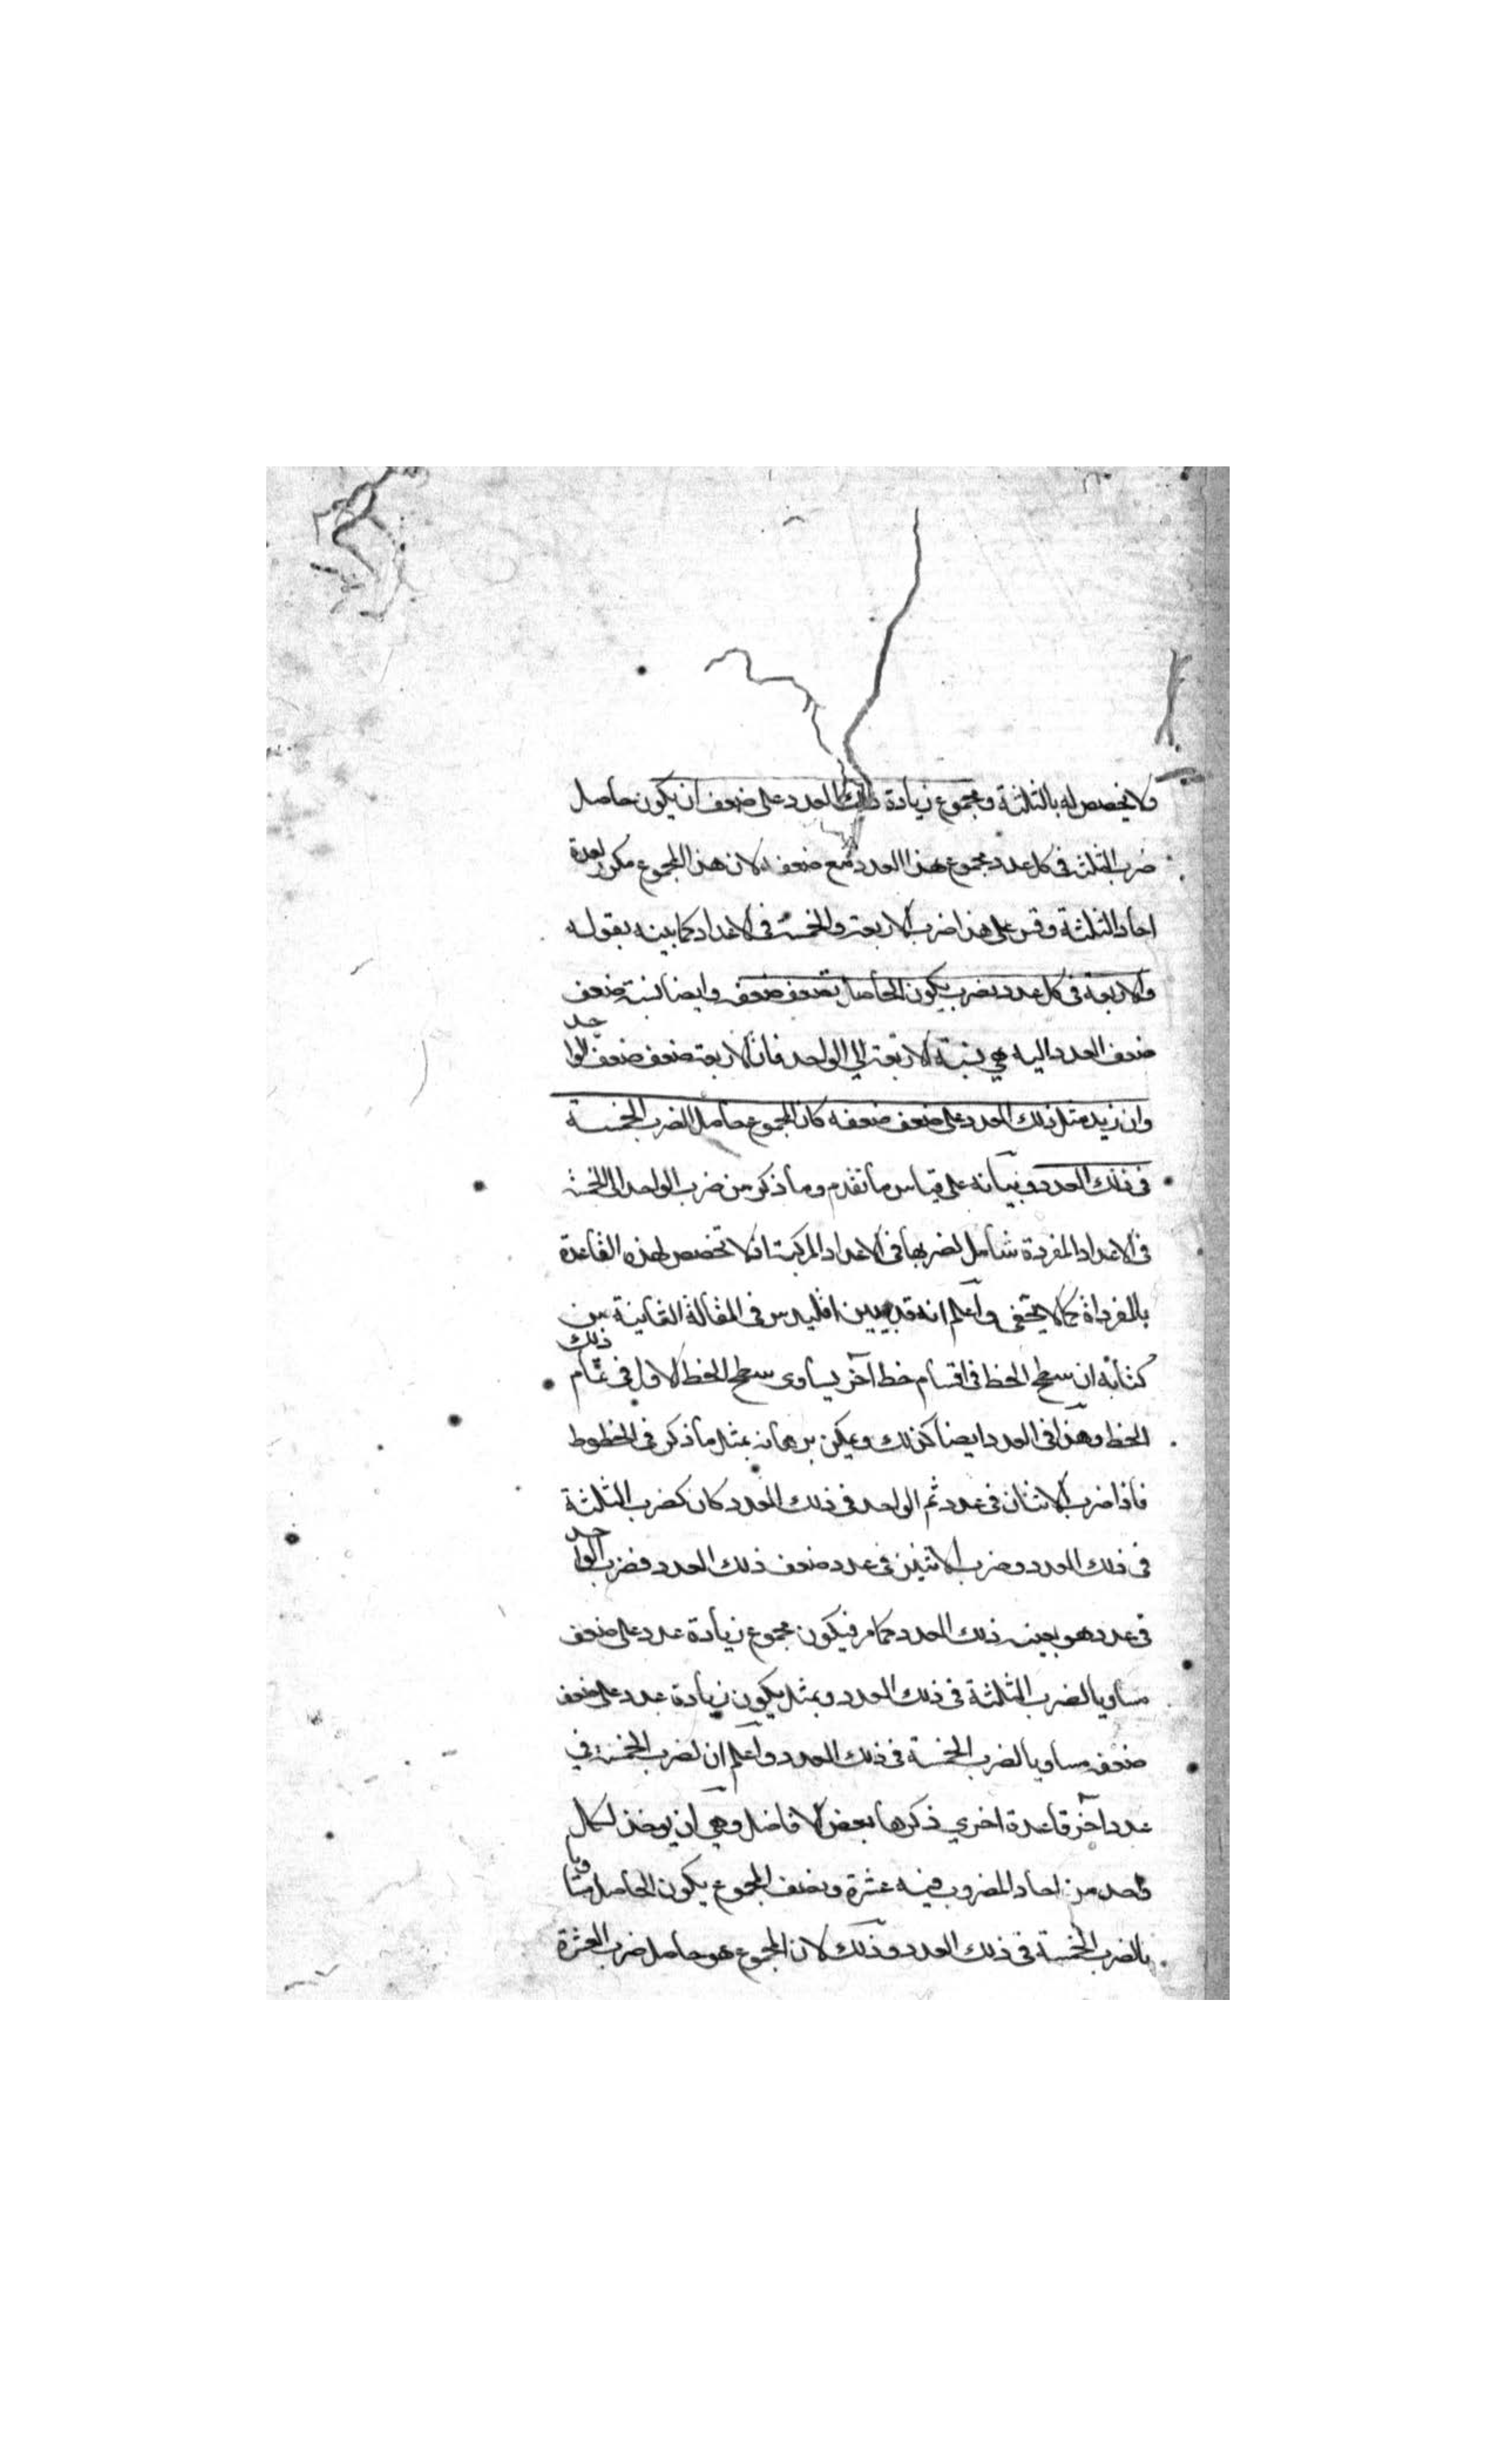 ولا يخصص له بالثلثة ومجموع زيادة ذلك العدد على ضعفه ان يكون حاصل
ضرب الثلثة في كل عدد مجموع هذا العدد مع ضعفه لان هذا المجموع مكرر لعدة
احاد الثلثة وقس على هذا ضرب الاربعة والخمسة في الاعداد كما بينه بقوله
والاربعة في كل عدد بضرب يكون الحاصل تضعف ضعفه وايضا نسبة ضعف
ضعف العدد اليه هي نسبة الاربعة الى الواحد فان الاربعة ضعف ضعف الواحد
وان زيد مثل ذلك العدد على ضعف ضعفه كان المجموع حاصل الضرب الخمسة
في ذلك العدد وبيانه على قياس ما تقدم وما ذكر من ضرب الواحد الى الخمسة
في الاعداد المفردة شامل لضربها في الاعداد المركبة اذ لا تخصص لهذه القاعدة
بالمفرداة كما لا يخفى واعلم انه قد بين اقليدس في المقالة الثانية من
كتابه ان سطح الخط في اقسام خط آخر يساوى سطح الخط الاول في تمام ذلك
الخط وهذا في العدد ايضا كذلك ويمكن برهانه بمثل ما ذكر في الخطوط
فاذا ضرب الاثنان في عدد ثم الواحد في ذلك العدد كان كضرب الثلثة
في ذلك العدد وضرب الاثنين في عدد ضعف ذلك العدد وضرب الواحد
في عدد هو بعينه ذلك العدد كما مر فيكون مجموع زيادة عدد على ضعفه
مساويا لضرب الثلثة في ذلك العدد وبمثله يكون زيادة عدد على ضعف
ضعفه مساويا لضرب الخمسة في ذلك العدد واعلم ان لضرب الخمسة في
عدد آخر قاعدة اخرى ذكرها بعض الافاضل وهي ان يوخذ لكل
واحد من احاد المضروب فيه عشرة ونصف المجموع يكون الحاصل مساويا
بالضرب الخمسة في ذلك العدد وذلك لان المجموع هو حاصل ضرب العشرة